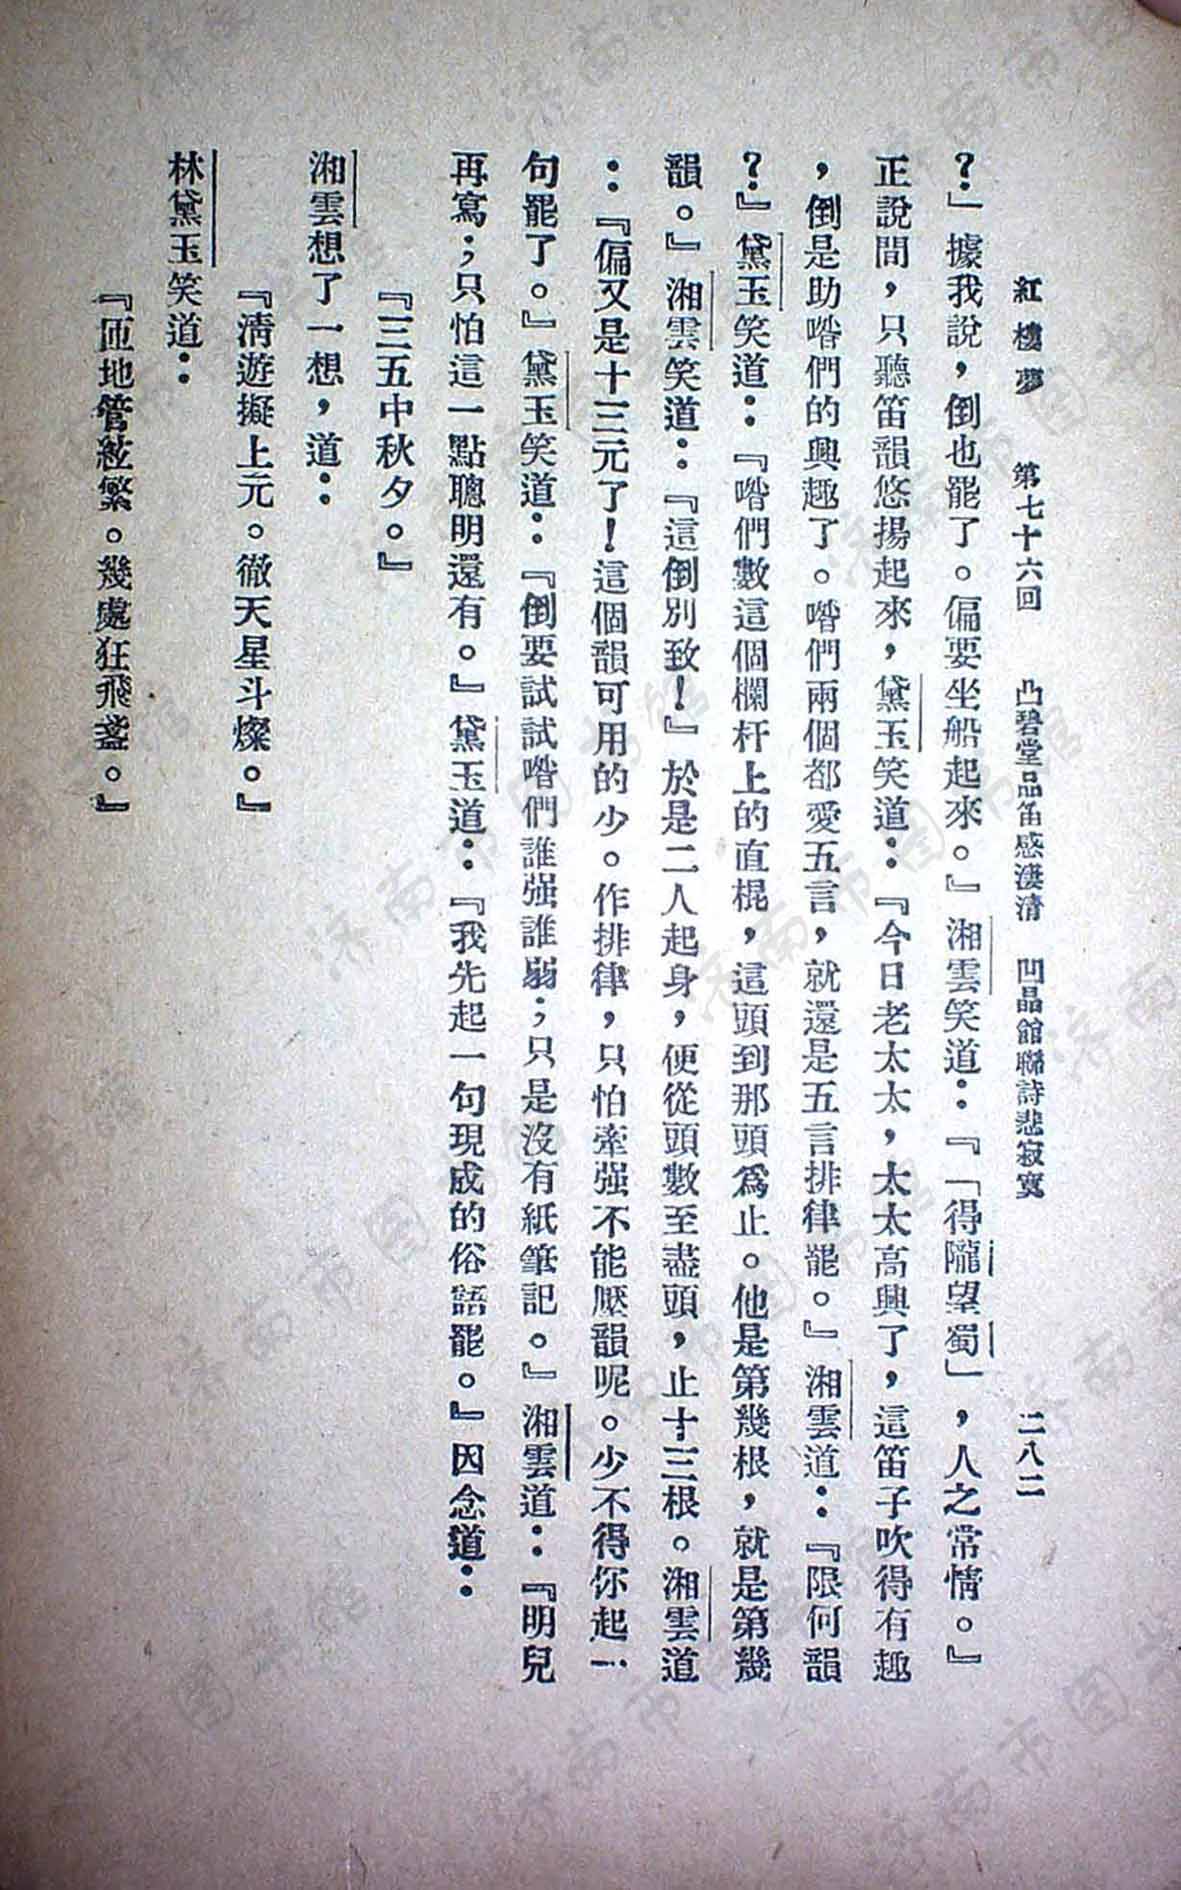 紅樓夢　第七十六回　凸碧堂品笛感淒清　凹晶館聯詩悲寂寞　二八二
？」據我說，倒也罷了。偏要坐船起來。』湘雲笑道：『「得隴望蜀」，人之常情。』
正說間，只聽笛韻悠揚起來，黛玉笑道：『今日老太太，太太高興了，這笛子吹得有趣
，倒是助喒們的興趣了。喒們兩個都愛五言，就還是五言排律罷。』湘雲道：『限何韻
？』黛玉笑道：『喒們數這個欄杆上的直棍，這頭到那頭爲止。他是第幾根，就是第幾
韻。』湘雲笑道：『這倒別致！』於是二人起身，便從頭數至盡頭，止十三根。湘雲道
：『偏又是十三元了！這個韻可用的少。作排律，只怕牽强不能壓韻呢。少不得你起一
句罷了。』黛玉笑道：『倒要試試喒們誰强誰弱；只是沒有紙筆記。』湘雲道：『明兒
再寫；只怕這一點聰明還有。』黛玉道：『我先起一句現成的俗語罷。』因念道：
『三五中秋夕。』
湘雲想了一想，道：
『淸遊擬上元。徹天星斗燦。』
林黛玉笑道：
『匝地管絃繁。幾處狂飛盞。』
济南市图书馆